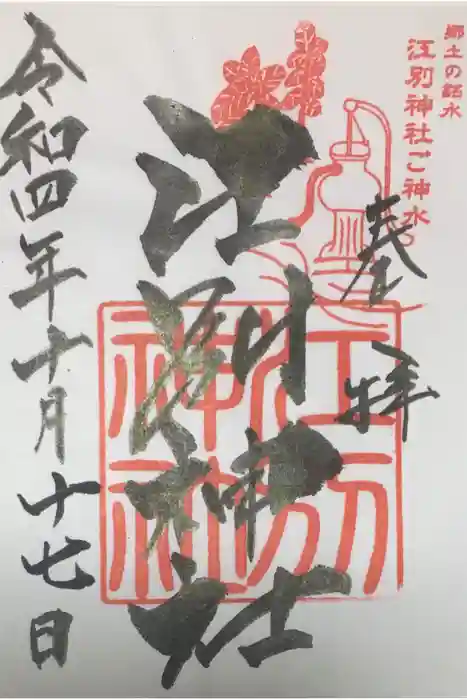 郷土の銘水
江別神社ご神水
奉拝
江別神社
江別神社
令和四年十月十七日